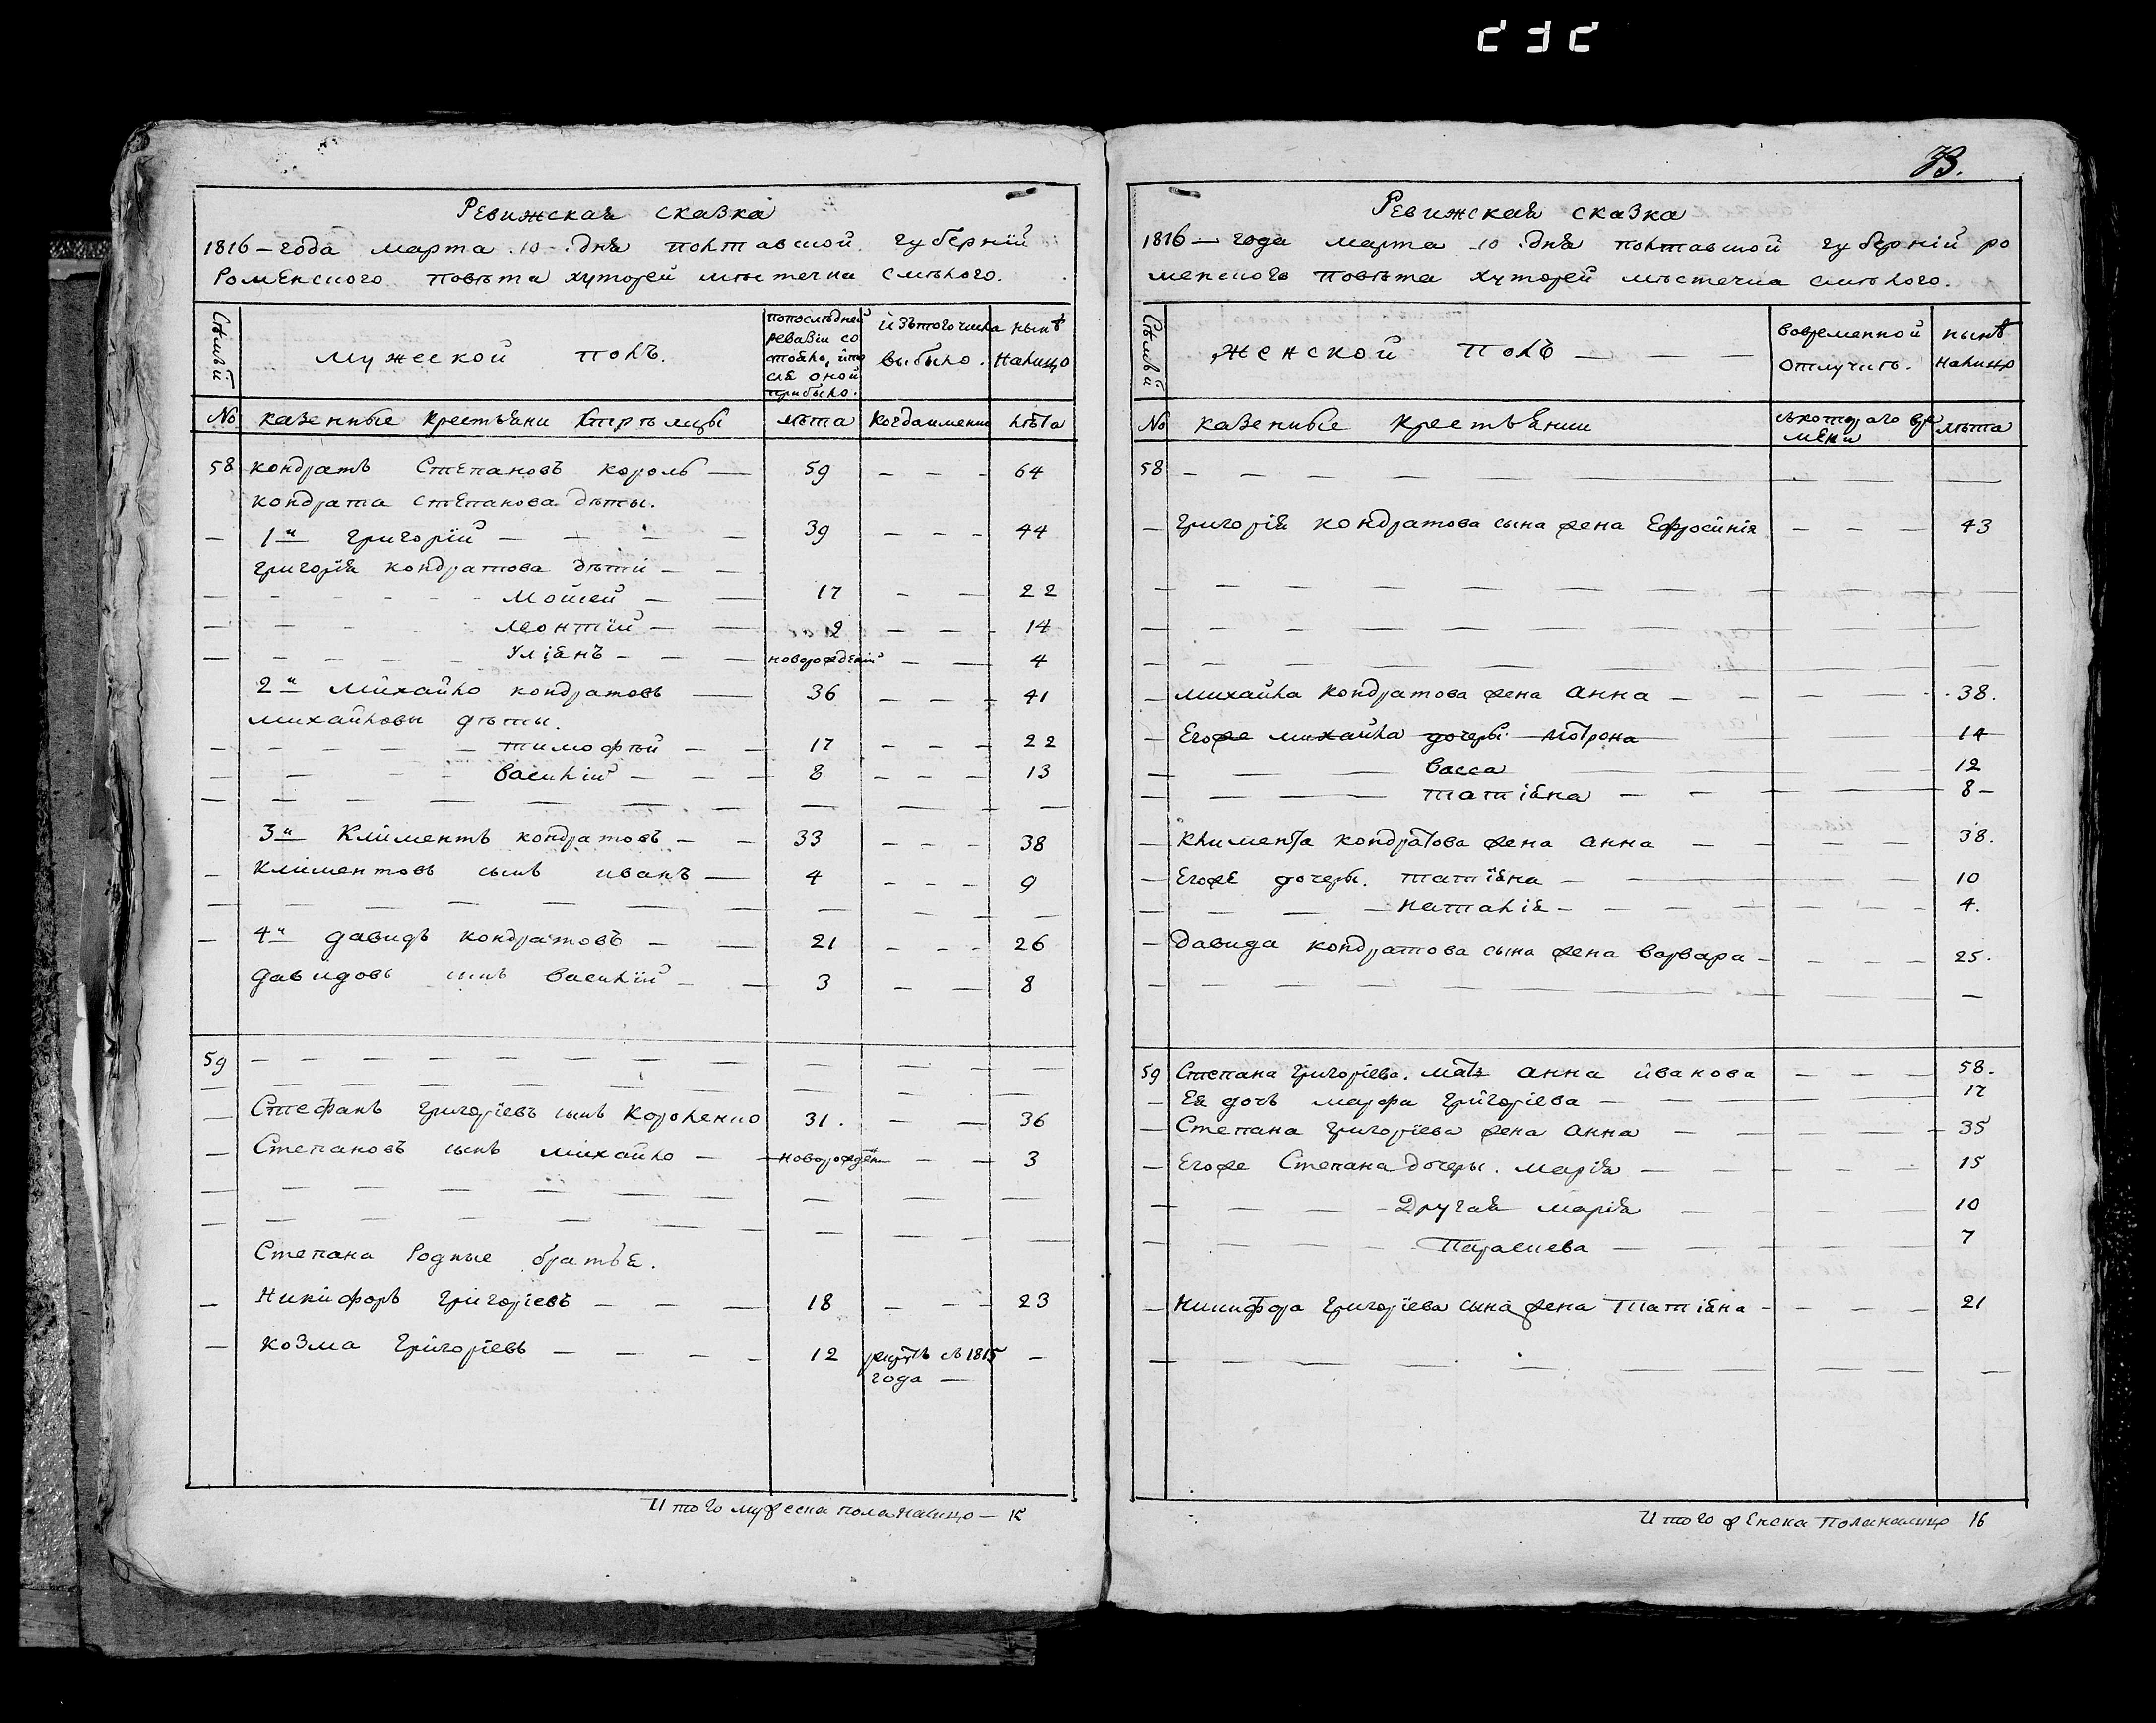 73.
Ревижская сказка
1816 – года марта 10 дня полтавской губерніи
Роменского повѣта хуторей мѣстечка смѣлого.
Сѣмьѣй
мужеской полъ.
попослѣдней ревизіи состояло, ипосля оной прибыло.
изътогочисла выбыло.
нынѣ налицо
№ казенные крестьяни
лѣта
когдаименно
лѣта
58 кондратъ Степановъ король — 59 - - - 64
кондрата степанова дѣты.
— 1й григорій — — — — 39 - - - 44
григорія кондратова дѣти — —
— - - - - - Мойсей — — 17 - — 22
— — - - - - леонтій — — 9 — — - 14
— - - - - - Уліянъ — — — новорожденій — — 4
2й михайло кондратовъ — 36 - - - 41
михайловы дѣты.
- - - - - тимофѣй — — 17 - - - 22
— — - - василій — — — 8 - - - 13
3й Климентъ кондратовъ — — 33 - - - 38
— климентовъ сынъ иванъ — 4 - - - 9
— 4й давидъ кондратовъ — — 21 - - - 26
давидовъ сынъ василій — — 3 — — 8
59 — — — — — — — —
— Стефанъ григоріевъ сынъ короленко 31. — — 36
— Степановъ сынъ михайло — — новорожден — — 3
Степана родные братья.
— Никифоръ григоріевъ — — — 18 - - - 23
— козма григоріевъ — — — — 12 съ 1815 —
года —
Итого мужеска пола налицо — 12
Ревижская сказка
1816 — года марта 10 дня полтавской губерній ро
менского повѣта хуторей мѣстечка смѣлого.
Сѣмьѣй
женской полъ — — —
вовременной отлучкѣ.
нынѣ налицо
№ казенные крестьянки
съкоторого вре
мени
лѣта
58 - - - - - -
— григорія кондратова сына жена Ефросинія — — — 43
— михайла кондратова жена анна — — — — 38.
— Егоже михайла дочери мотрона 14
— — — — васса 12
— — — — татіяна — — — — 8 –
— климента кондратова жена анна — — — — 38.
— Егоже дочери. татіяна — — — — 10
— — — — наталія — — — — 4.
— давида кондратова сына жена варвара — — — — 25.
59 Степана григоріева. мать анна иванова — — — 58.
— Ея дочь марфа григоріева — — — — 17
— Степана григоріева жена анна — — — — 35
— Егоже Степана дочеры. марія — — — — 15
— — — — Другая марія — — — — 10
— - - - - Параскева — — — — 7
— Никифора григоріева сына жена татіяна — — — — 21
Итого женска пола налицо 16